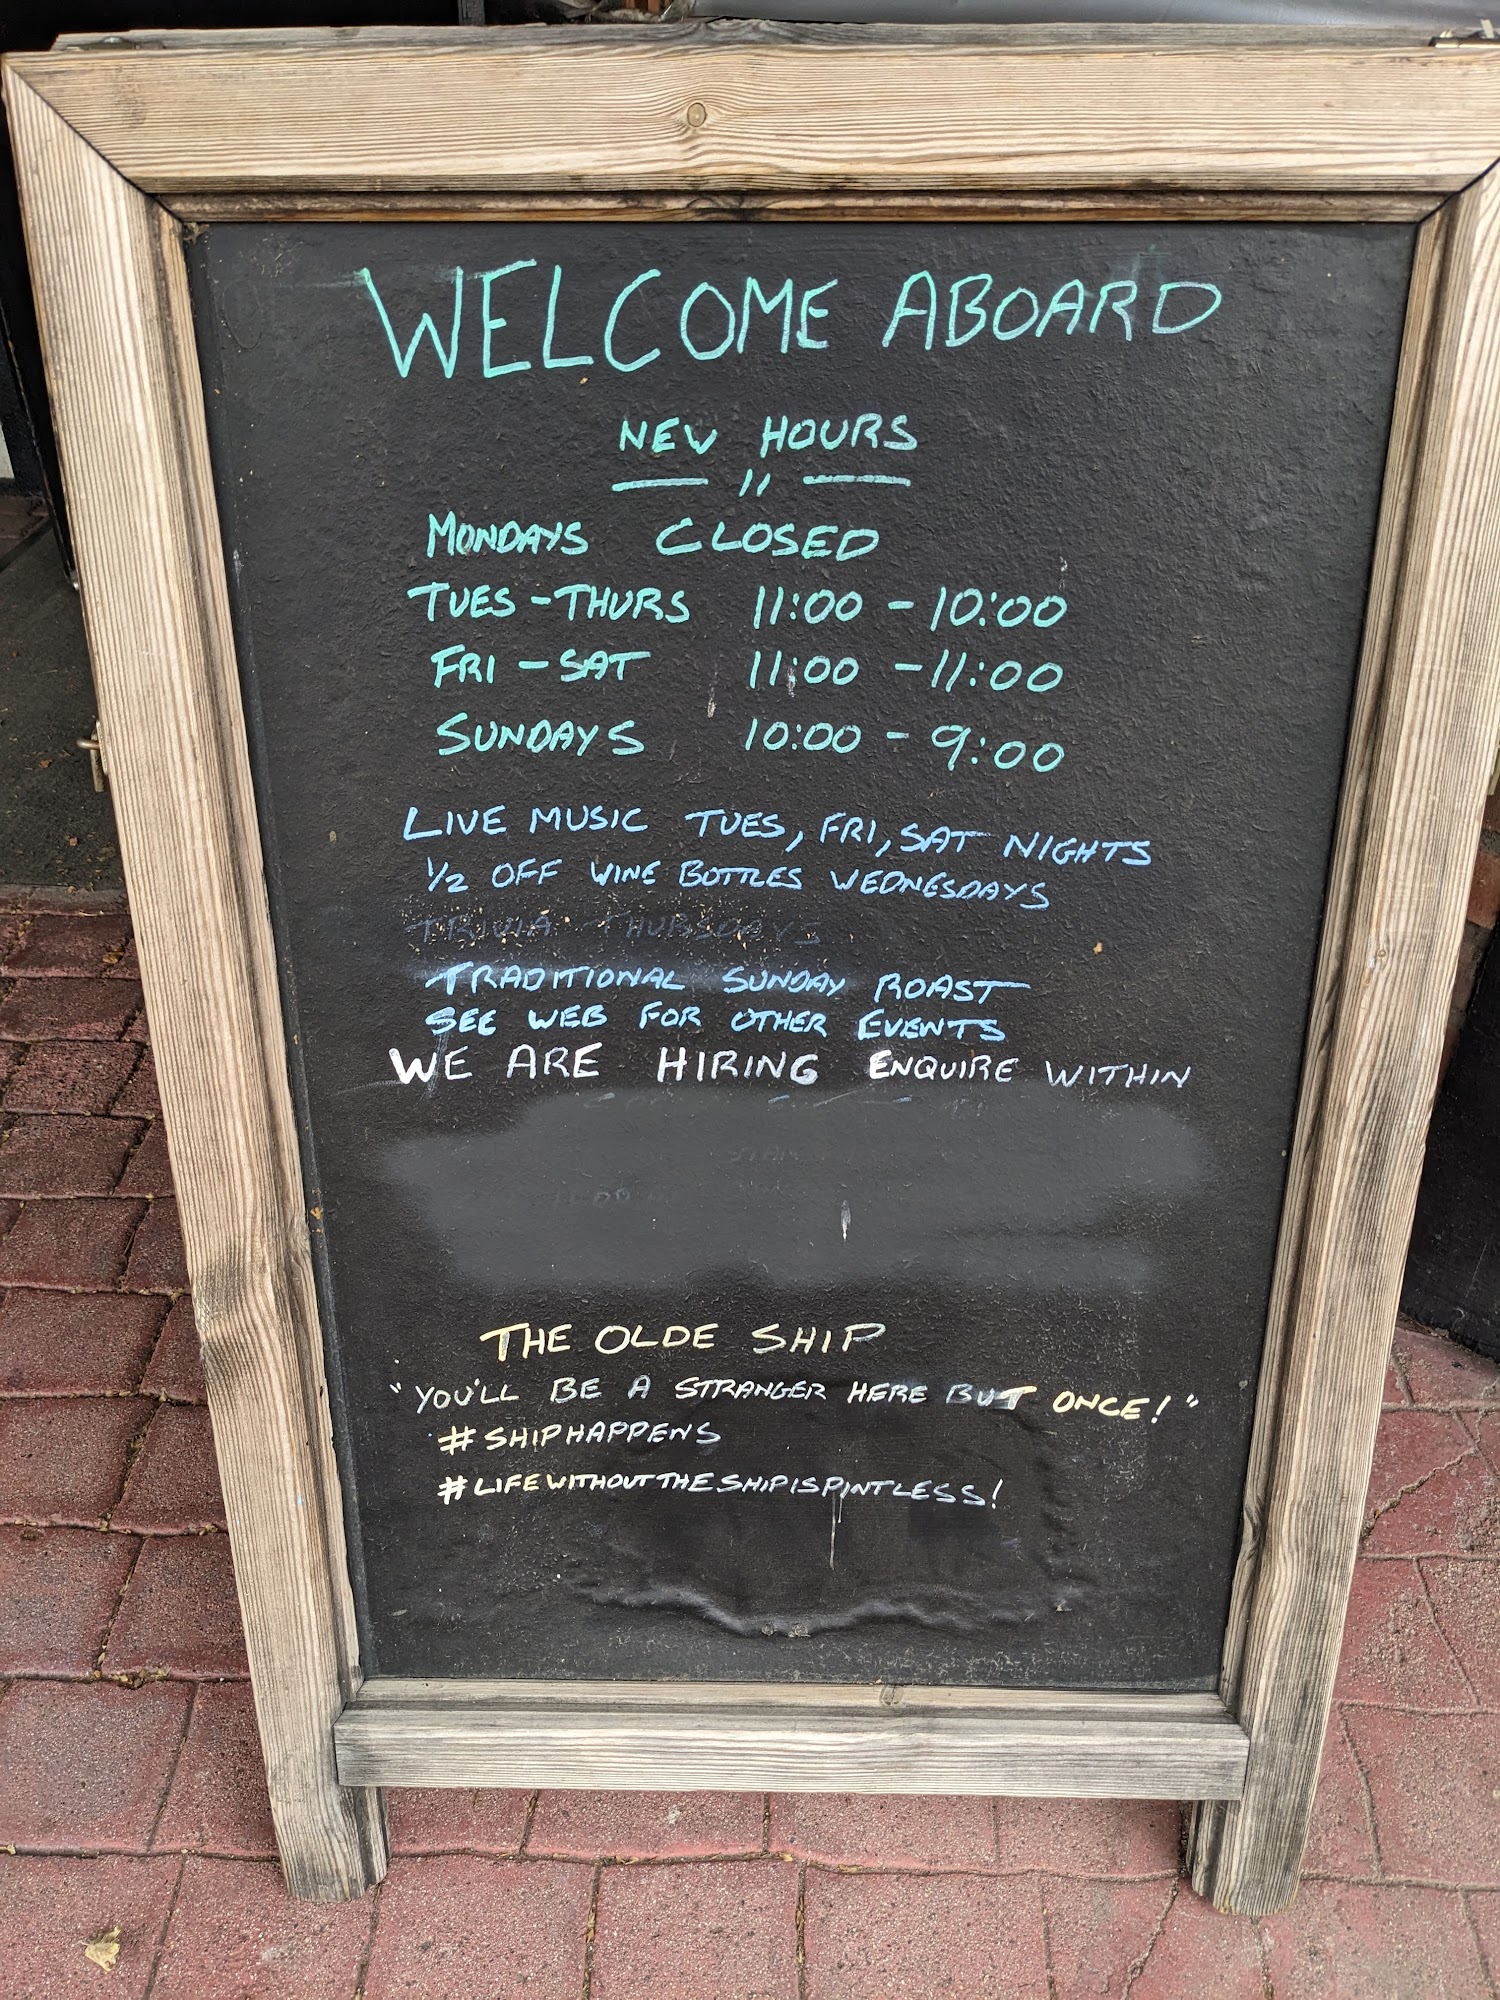 WELCOME ABOARD
NEW HOURS
MONDAYS CLOSED
TUES-THURS 11:00 - 10:00
FRI - SAT 11:00 - 11:00
SUNDAYS 10:00 - 9:00
LIVE MUSIC TUES, FRI, SAT NIGHTS
1/2 OFF WINE BOTTLES WEDNESDAYS
TRIVIA THURSDAYS
TRADITIONAL SUNDAY ROAST
SEE WEB FOR OTHER EVENTS
WE ARE HIRING ENQUIRE WITHIN
THE OLDE SHIP
"YOU'LL BE A STRANGER HERE BUT ONCE!"
#SHIPHAPPENS
#LIFEWITHOUTTHESHIPISPINTLESS!